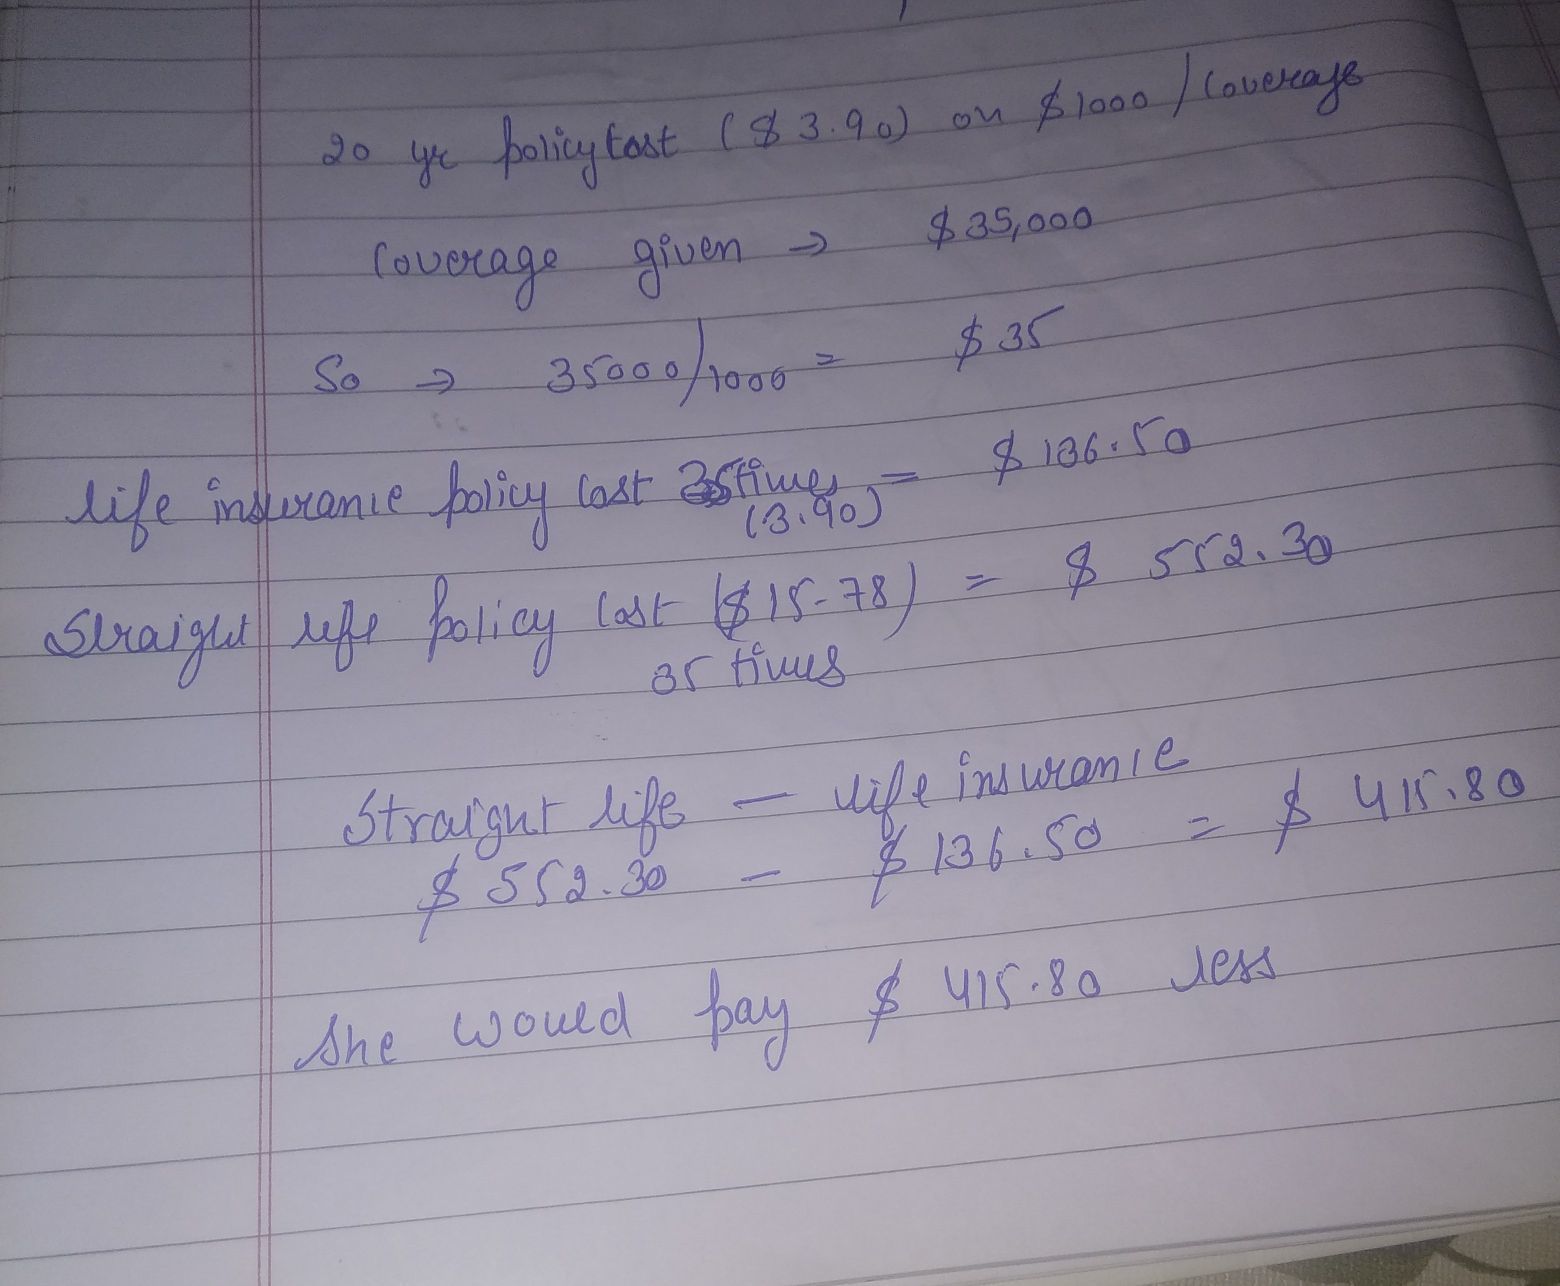 20 yr policy Cost ($3.90) on $1000/Coverage
Coverage given → $35,000
So → 35000/1000 = $35
life insurance policy cost 35times = $136.50
(3.90)
Straight life policy cost ($15.78) = $ 552.30
35 times
Straight life — life insurance
$552.30 — $136.50 = $415.80
She would pay $415.80 less